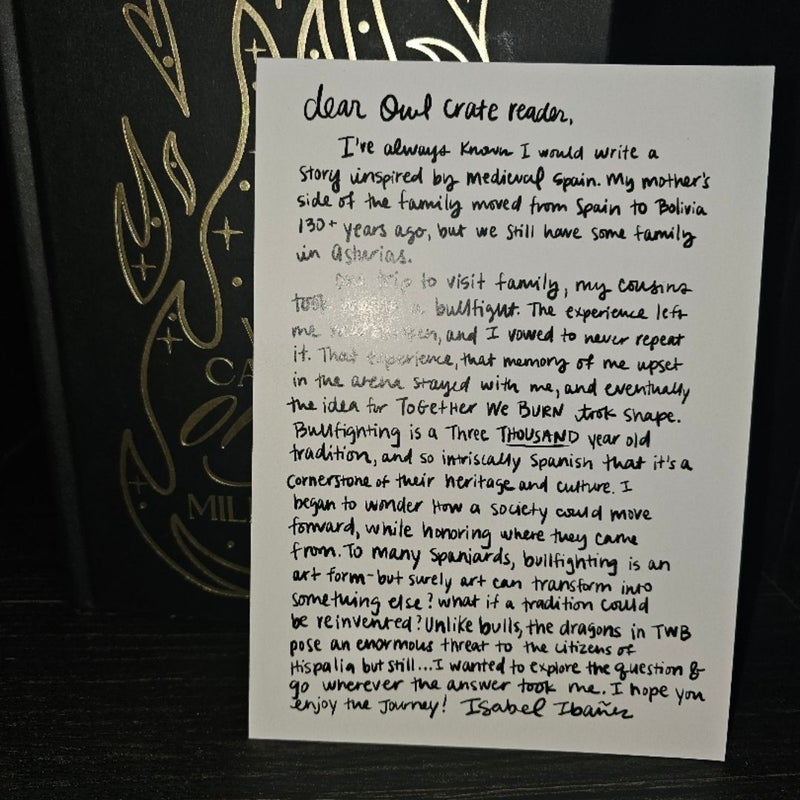 dear Owl Crate reader,
I've always known I would write a
story inspired by medieval Spain. My mother's
side of the family moved from Spain to Bolivia
130+ years ago, but we still have some family
in Asturias.
One trip to visit family, my cousins
took a bullfight. The experience left
me and I vowed to never repeat
it. That experience, that memory of me upset
in the arena stayed with me, and eventually
the idea for TOGETHER WE BURN took shape.
Bullfighting is a Three THOUSAND year old
tradition, and so intriscally Spanish that it's a
cornerstone of their heritage and culture. I
began to wonder how a society could move
forward, while honoring where they came
from. To many Spaniards, bullfighting is an
art form-but surely art can transform into
something else? what if a tradition could
be reinvented? Unlike bulls, the dragons in TWB
pose an enormous threat to the citizens of
Hispalia but still...I wanted to explore the question &
go wherever the answer took me. I hope you
enjoy the journey! Isabel Ibañez
CA
MIL